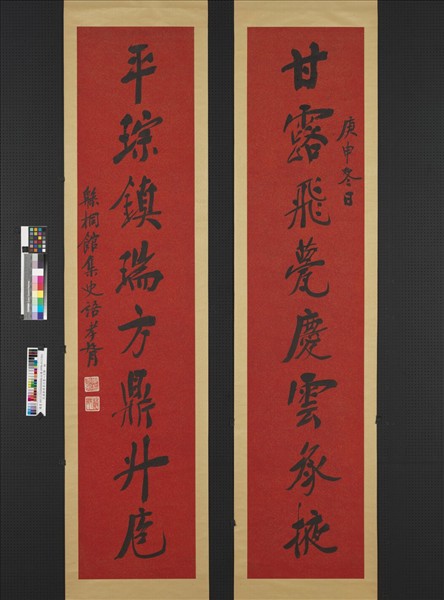 庚申冬日
甘露飛甍慶雲承掖
平琮鎮瑞方鼎升庖
緜桐館集史語孝胥